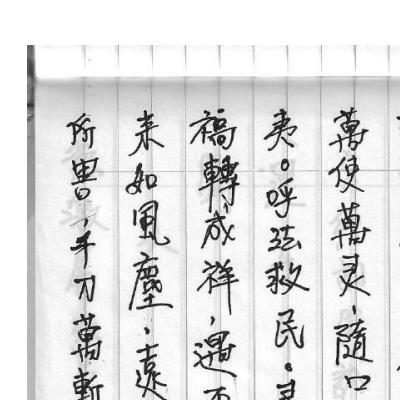 萬使萬灵，隨口
夷。呼法救民。
禍轉成祥，遇
来如風塵、
所 、千刀萬斬